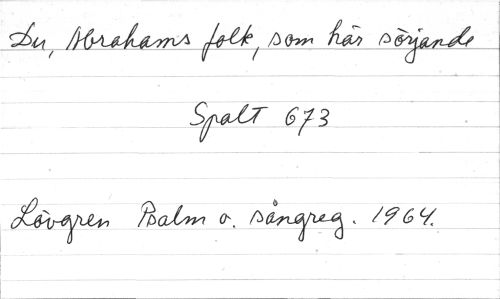 Du, Abrahams folk, som här sörjande
Spalt 673
Lövgren Psalm o. sångreg. 1964.